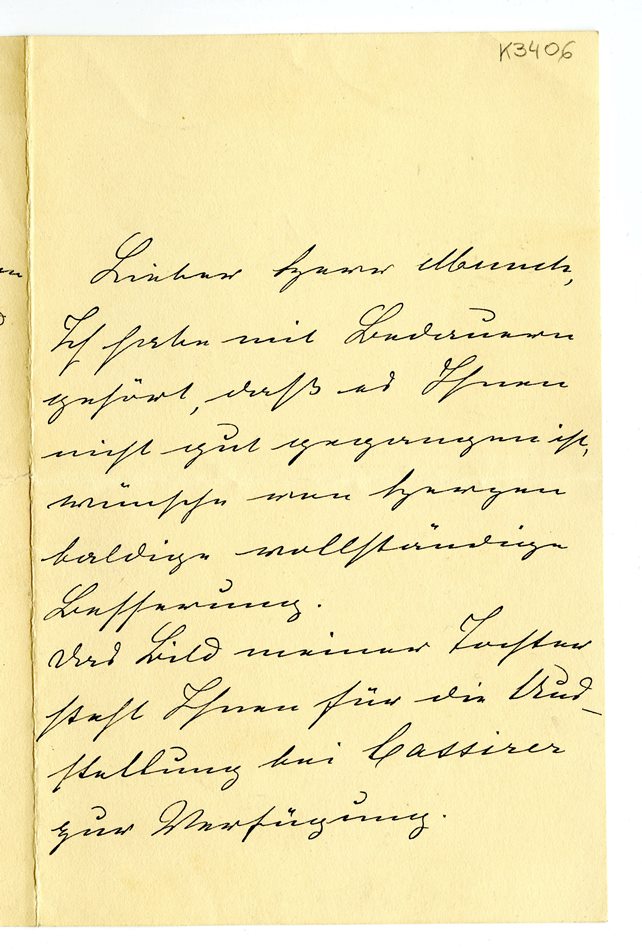 K3406
Lieber Herr Munch,
Ich habe mit Bedauern
gehört, daß es Ihnen
nicht gut gegangen ist,
wünsche von Herzen
baldige vollständige
Besserung.
Das Bild meiner Tochter
steht Ihnen für die Aus-
stellung bei Cassirer
zur Verfügung.